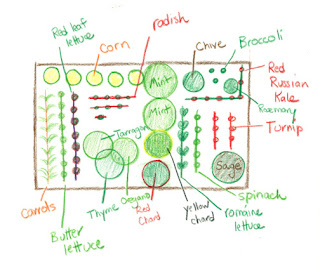 Red leaf
lettuce
corn
radish
chive
Broccoli
Red
Russian
Kale
Rosemary
Turnip
Mint
Mint
Tarragon
Sage
carrots
Butter
lettuce
Thyme
Oregano
Red
Chard
yellow
chard
romaine
lettuce
spinach